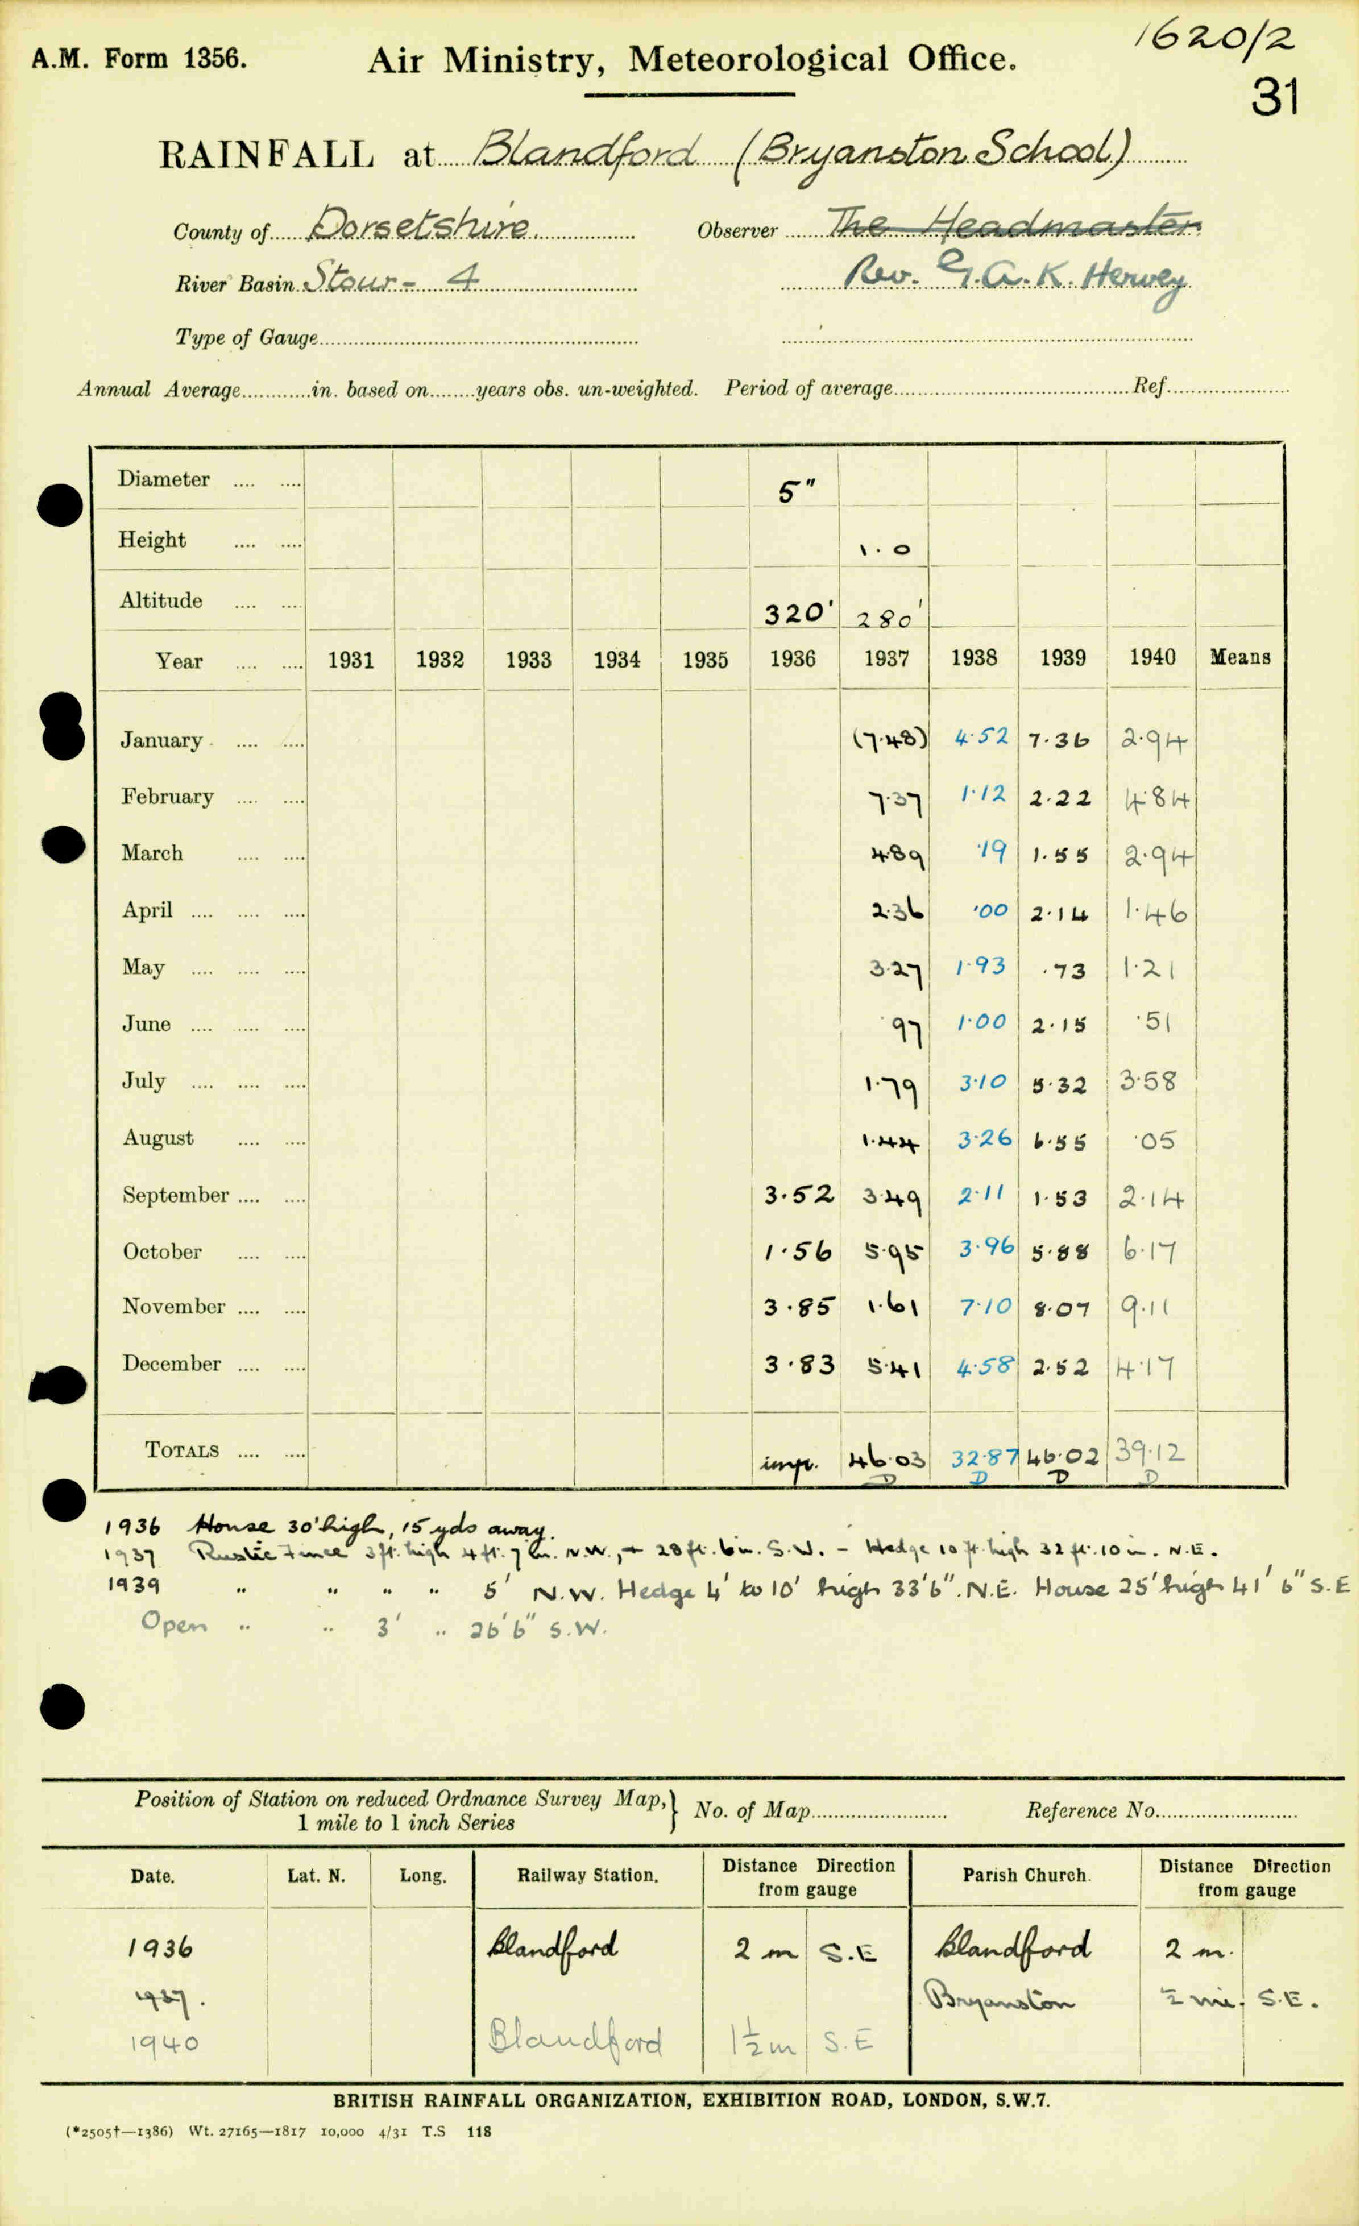 1620/2
A.M. Form 1356. Air Ministry, Meteorological Office.
31
RAINFALL at Blandford (Bryanston School)
County of Dorsetshire. Observer The Headmaster
River Basin Stour - 4 Rev. G.A.K. Hervey
Type of Gauge
Annual Average in. based on years obs. un-weighted. Period of average Ref.
Diameter 5"
Height 1.0
Altitude 320' 280'
Year 1931 1932 1933 1934 1935 1936 1937 1938 1939 1940 Means
January (7.48) 4.52 7.36 2.94
February 7.37 1.12 2.22 4.84
March 4.89 .19 1.55 2.94
April 2.36 .00 2.14 1.46
May 3.27 1.93 .73 1.21
June .97 1.00 2.15 .51
July 1.79 3.10 5.32 3.58
August 1.44 3.26 6.55 .05
September 3.52 3.49 2.11 1.53 2.14
October 1.56 5.95 3.96 5.88 6.17
November 3.85 1.61 7.10 8.07 9.11
December 3.83 5.41 4.58 2.52 4.17
TOTALS imp. 46.03 32.87 46.02 39.12
D D D D
1936 House 30' high, 15 yds away.
1937 Rustic Fence 3 ft. high 4 ft. 7 in. N.W., + 28 ft. 6 in. S.W. - Hedge 10 ft. high 32 ft. 10 in. N.E.
1939 " " " " 5' N.W. Hedge 4' to 10' high 33' 6". N.E. House 25' high 41' 6" S.E
Open " " 3' " 26' 6" S.W.
Position of Station on reduced Ordnance Survey Map, } No. of Map Reference No.
1 mile to 1 inch Series
Date. Lat. N. Long. Railway Station. Distance Direction from gauge Parish Church. Distance Direction from gauge
1936 Blandford 2 m S.E Blandford 2 m.
1937. Bryanston ½ mi. S.E.
1940 Blandford 1½ m S.E
BRITISH RAINFALL ORGANIZATION, EXHIBITION ROAD, LONDON, S.W.7.
(*2505†—1386) Wt. 27165—1817 10,000 4/31 T.S 118